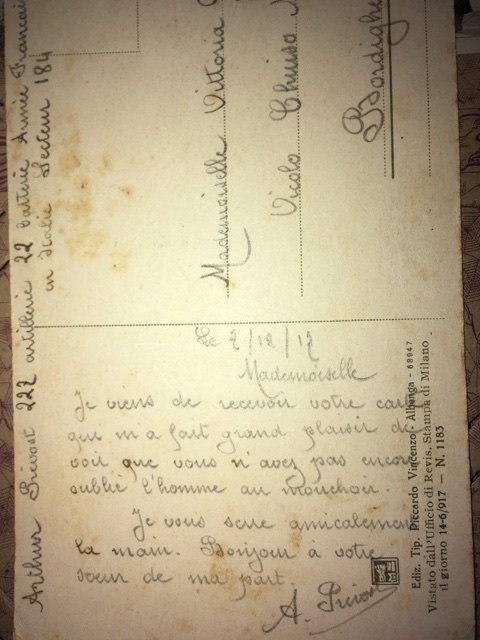 Le 2/12/17
Mademoiselle
Je viens de recevoir votre carte
qui m'a fait grand plaisir de
voir que vous n'avez pas encore
oublié l'homme au mouchoir.
Je vous serre amicalement
la main. Bonjour à votre
soeur de ma part.
A. Prévost
Mademoiselle Vittoria
Vicolo Chiuso
Bordighe
Arthur Prévost 222 artillerie 22 batterie Armée Francai
en Italie Secteur 184
Ediz. Tip. Riccardo Vincenzo, Albenga - 68947
Vistato dall'Ufficio di Revis. Stampa di Milano
il giorno 14-6/917 - N. 1183